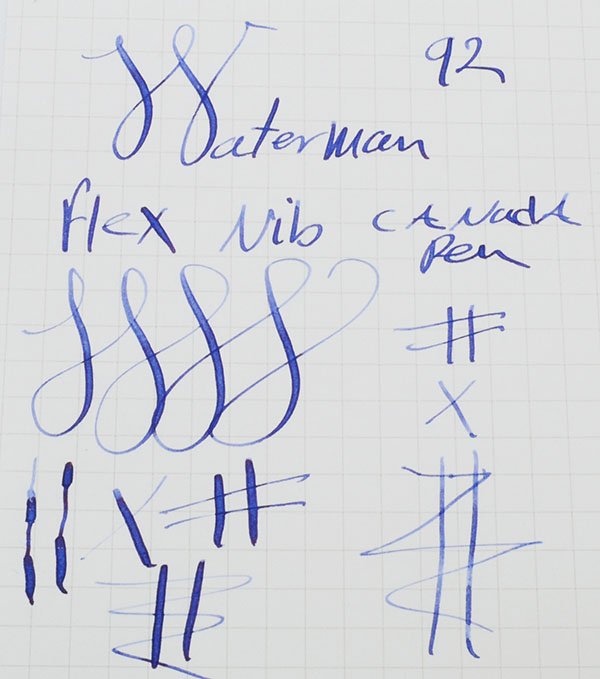 Waterman 92
Flex Nib CANADA
Pen